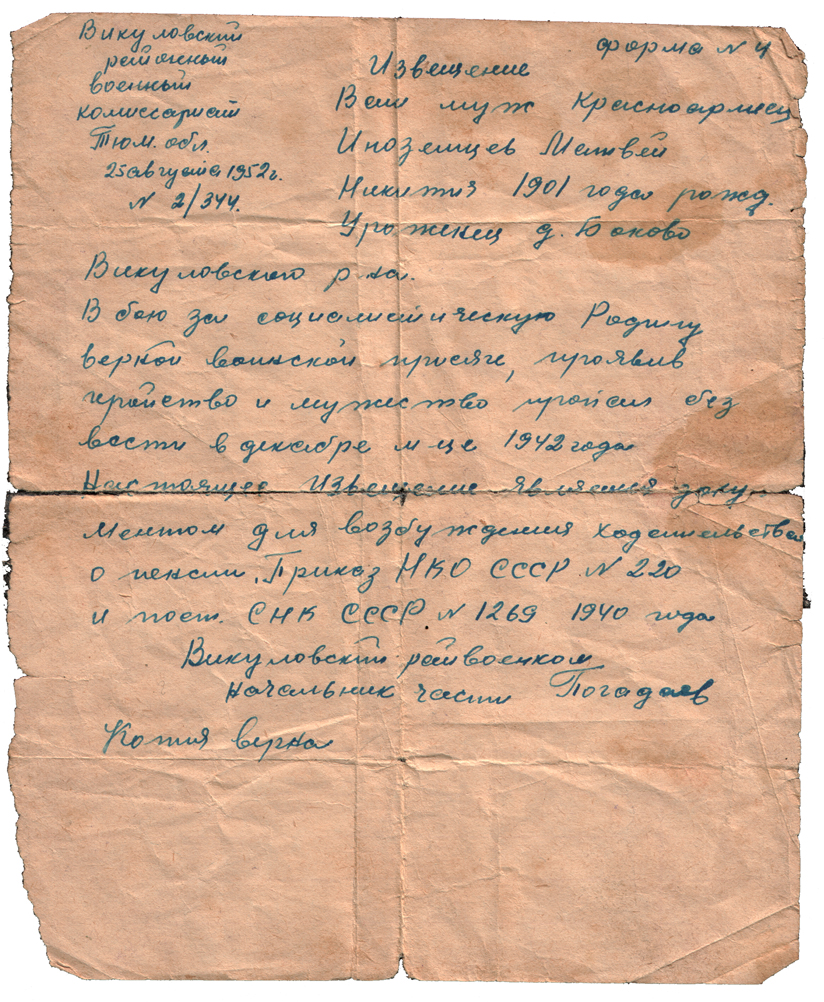 Викуловский
районный
военный
комиссариат
Тюм. обл.
25 августа 1952г.
N 2/344.
форма N 4
Извещение
Ваш муж Красноармеец
Иноземцев Матвей
Никитич 1901 года рожд.
Уроженец д. Боково
Викуловского р-на.
В бою за социалистическую Родину
верной воинской присяге, проявив
геройство и мужество пропал без
вести в декабре м-це 1942 года
Настоящее Извещение является доку
ментом для возбуждения ходатайства
о пенсии, Приказ НКО СССР N 220
и пост. СНК СССР N 1269 1940 года
Викуловский райвоенком
Начальник части Погадаев
Копия верна